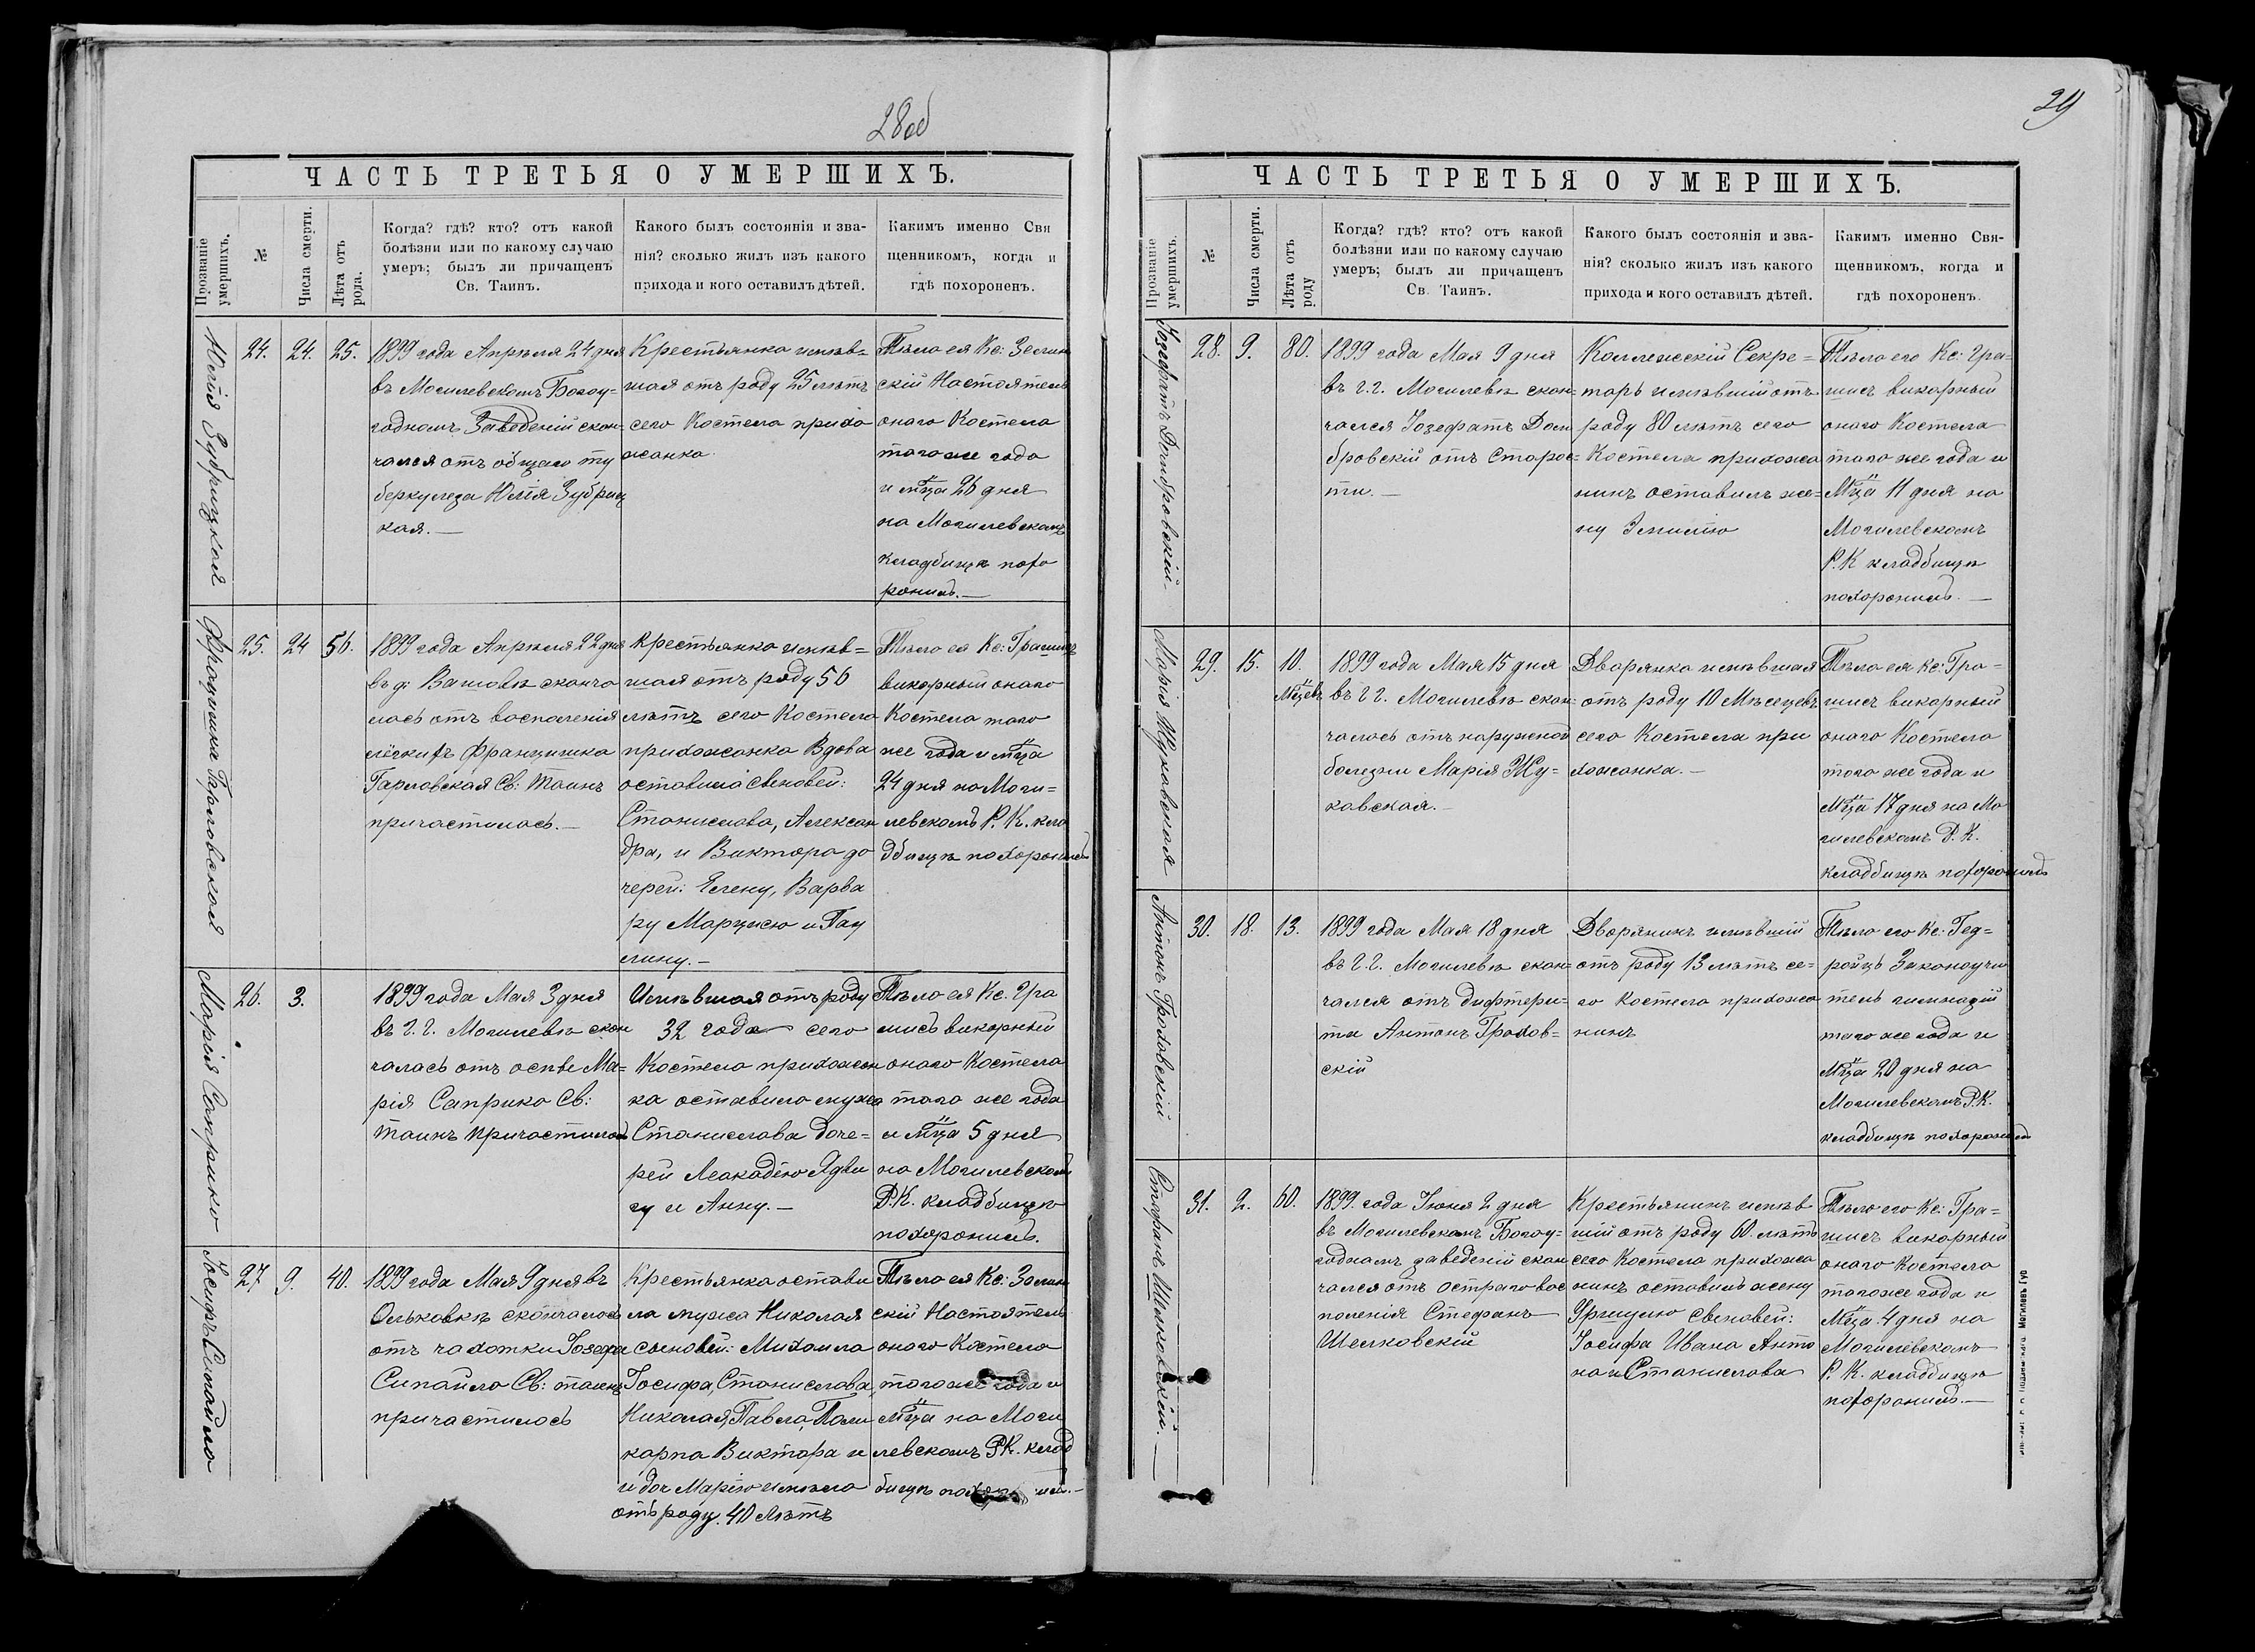 28об
ЧАСТЬ ТРЕТЬЯ О УМЕРШИХЪ.
Прозваніе умершихъ.
№
Числа смерти.
Лѣта отъ рода.
Когда? гдѣ? кто? отъ какой
болѣзни или по какому случаю
умеръ; былъ ли причащенъ
Св. Таинъ.
Какого былъ состоянія и зва-
нія? сколько жилъ изъ какого
прихода и кого оставилъ дѣтей.
Какимъ именно Свя
щенникомъ, когда и
гдѣ похороненъ.
Юлія Зубрицкая
24.
24.
25.
1899 года Апрѣля 24 дня
въ Могилевскомъ Богоу=
годномъ Заведеній скон=
чался отъ общаго ту
беркулеза Юлія Зубриц
кая.—
Крестьянка имѣв=
шая отъ роду 25 лѣтъ
сего Костела прихо
жанка.
Тѣло ея Кс: Зелин
скій Настоятель
онаго Костела
тогоже года
и мца 26 дня
на Могилевскомъ
кладбищѣ похо
ронилъ.—
Францишка Гарловская
25.
24
56.
1899 года Апрѣля 22 дня
въ д: Вашовѣ сконча
лась отъ воспаленія
лёгкихъ Францишка
Гарловская Св: Таинъ
причастилась.—
Крестьянка имѣв=
шая отъ роду 56
лѣтъ сего Костела
прихожанка Вдова
оставила сыновей:
Станислава, Алексан
дра, и Виктора до
черей: Елену, Варва
ру Марцелю и Пау
лину.—
Тѣло ея Кс: Грашисъ
викарный онаго
Костела того
же года и мца
24 дня на Моги=
левскомъ Р. К. кла
дбищѣ похоронилъ
Марія Саприко
26.
3.
1899 года Мая 3 дня
въ г. г. Могилевѣ скон
чалась отъ оспы Ма=
рія Саприко Св:
Таинъ причастилась
Имѣвшая отъ роду
32 года сего
Костела прихожан
ка оставила мужа
Станислава доче=
рей Леакадію Ядви
гу и Анну.—
Тѣло ея Кс. Гра
шисъ викарный
онаго Костела
того же года
и мца 5 дня
на Могилевскомъ
Р.К. кладбищѣ
похоронилъ.
Іосифъ Сипайло
27
9.
40.
1899 года Мая 9 дня въ
Ольховкѣ скончалась
отъ чахотки Іозефа
Сипайло Св: таинъ
причастилась
Крестьянка остави
ла мужа Николая
сыновей: Михаила
Іосифа, Станислава,
Николая, Павла, Поли
карпа Виктора и
и доч Марію имѣла
отъ роду. 40 лѣтъ
Тѣло ея Кс: Зелин
скій Настоятель
онаго Костела
тогоже года и
мца на Моги
левскомъ Р.К. клад
бищѣ
29
ЧАСТЬ ТРЕТЬЯ О УМЕРШИХЪ.
Прозваніе умершихъ.
№
Числа смерти.
Лѣта отъ роду
Когда? гдѣ? кто? отъ какой
болѣзни или по какому случаю
умеръ; былъ ли причащенъ
Св. Таинъ.
Какого былъ состоянія и зва-
нія? сколько жилъ изъ какого
прихода и кого оставилъ дѣтей.
Какимъ именно Свя-
щенникомъ, когда и
гдѣ похороненъ.
Іозефатъ Домбровскій
28.
9.
80.
1899 года Мая 9 дня
въ г. г. Могилевѣ скон=
чался Іозефатъ Дом
бровскій отъ Старос=
ти.—
Коллежскій Секре=
таръ имѣвшій отъ
роду 80 лѣтъ сего
Костела прихожа
нинъ оставилъ же=
ну Эмилію
Тѣло его Кс: Гра=
шисъ викарный
онаго Костела
того же года и
Мца 11 дня на
Могилевскомъ
Р.К кладбищѣ
похоронилъ.—
Марія Жуковская
29.
15.
10.
Мцевъ
1899 года Мая 15 дня
въ г г. Могилевѣ скон=
чалась отъ наружной
болезни Марія Жу=
ковская.—
Дворянка имѣвшая
отъ роду 10 Мѣсецевъ
сего Костела при
хожанка.—
Тѣло ея Кс: Гра=
шисъ викарный
онаго Костела
того же года и
Мца 17 дня на Мо
гилевскомъ Р. К.
кладбищѣ похоронилъ
Антонъ Гроховскій
30.
18.
13.
1899 года Мая 18 дня
въ г. г. Могилевѣ скон=
чался отъ дифтери=
та Антонъ Грохов=
скій
Дворянинъ имѣвшій
отъ роду 13 лѣтъ се=
го Костела прихожа
нинъ
Тѣло его Кс: Гед=
ройцъ Законоучи
тель гимназій
того же года и
Мца 20 дня на
Могилевскомъ Р.К.
кладбищѣ похоронилъ
Стефанъ Шелковскій.—
31.
2.
60.
1899. года Іюня 2 дня
въ Могилевскомъ Богоу=
годномъ заведеній скон
чался отъ остраго вос
паленія Стефанъ
Шелковскій
Крестьянинъ имѣв
шій отъ роду 60. лѣтъ
сего Костела прихожа
нинъ оставилъ жену
сыновей:
Іосифа Ивана Анто
на и Станислава
Тѣло его Кс: Гра=
шисъ викарный
онаго Костела
тогоже года и
Мца 4 дня на
Могилевскомъ
Р. К. кладбищѣ
похоронилъ.—